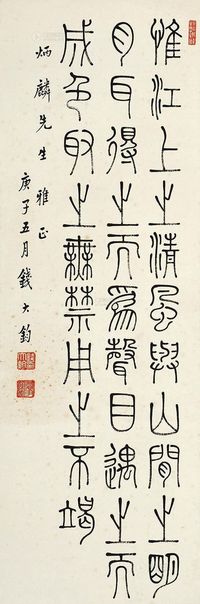 惟江上之清風與山間之明
月耳得之而為聲目遇之而
成色取之無禁用之不竭
炳麟先生雅正
庚子五月錢大鈞